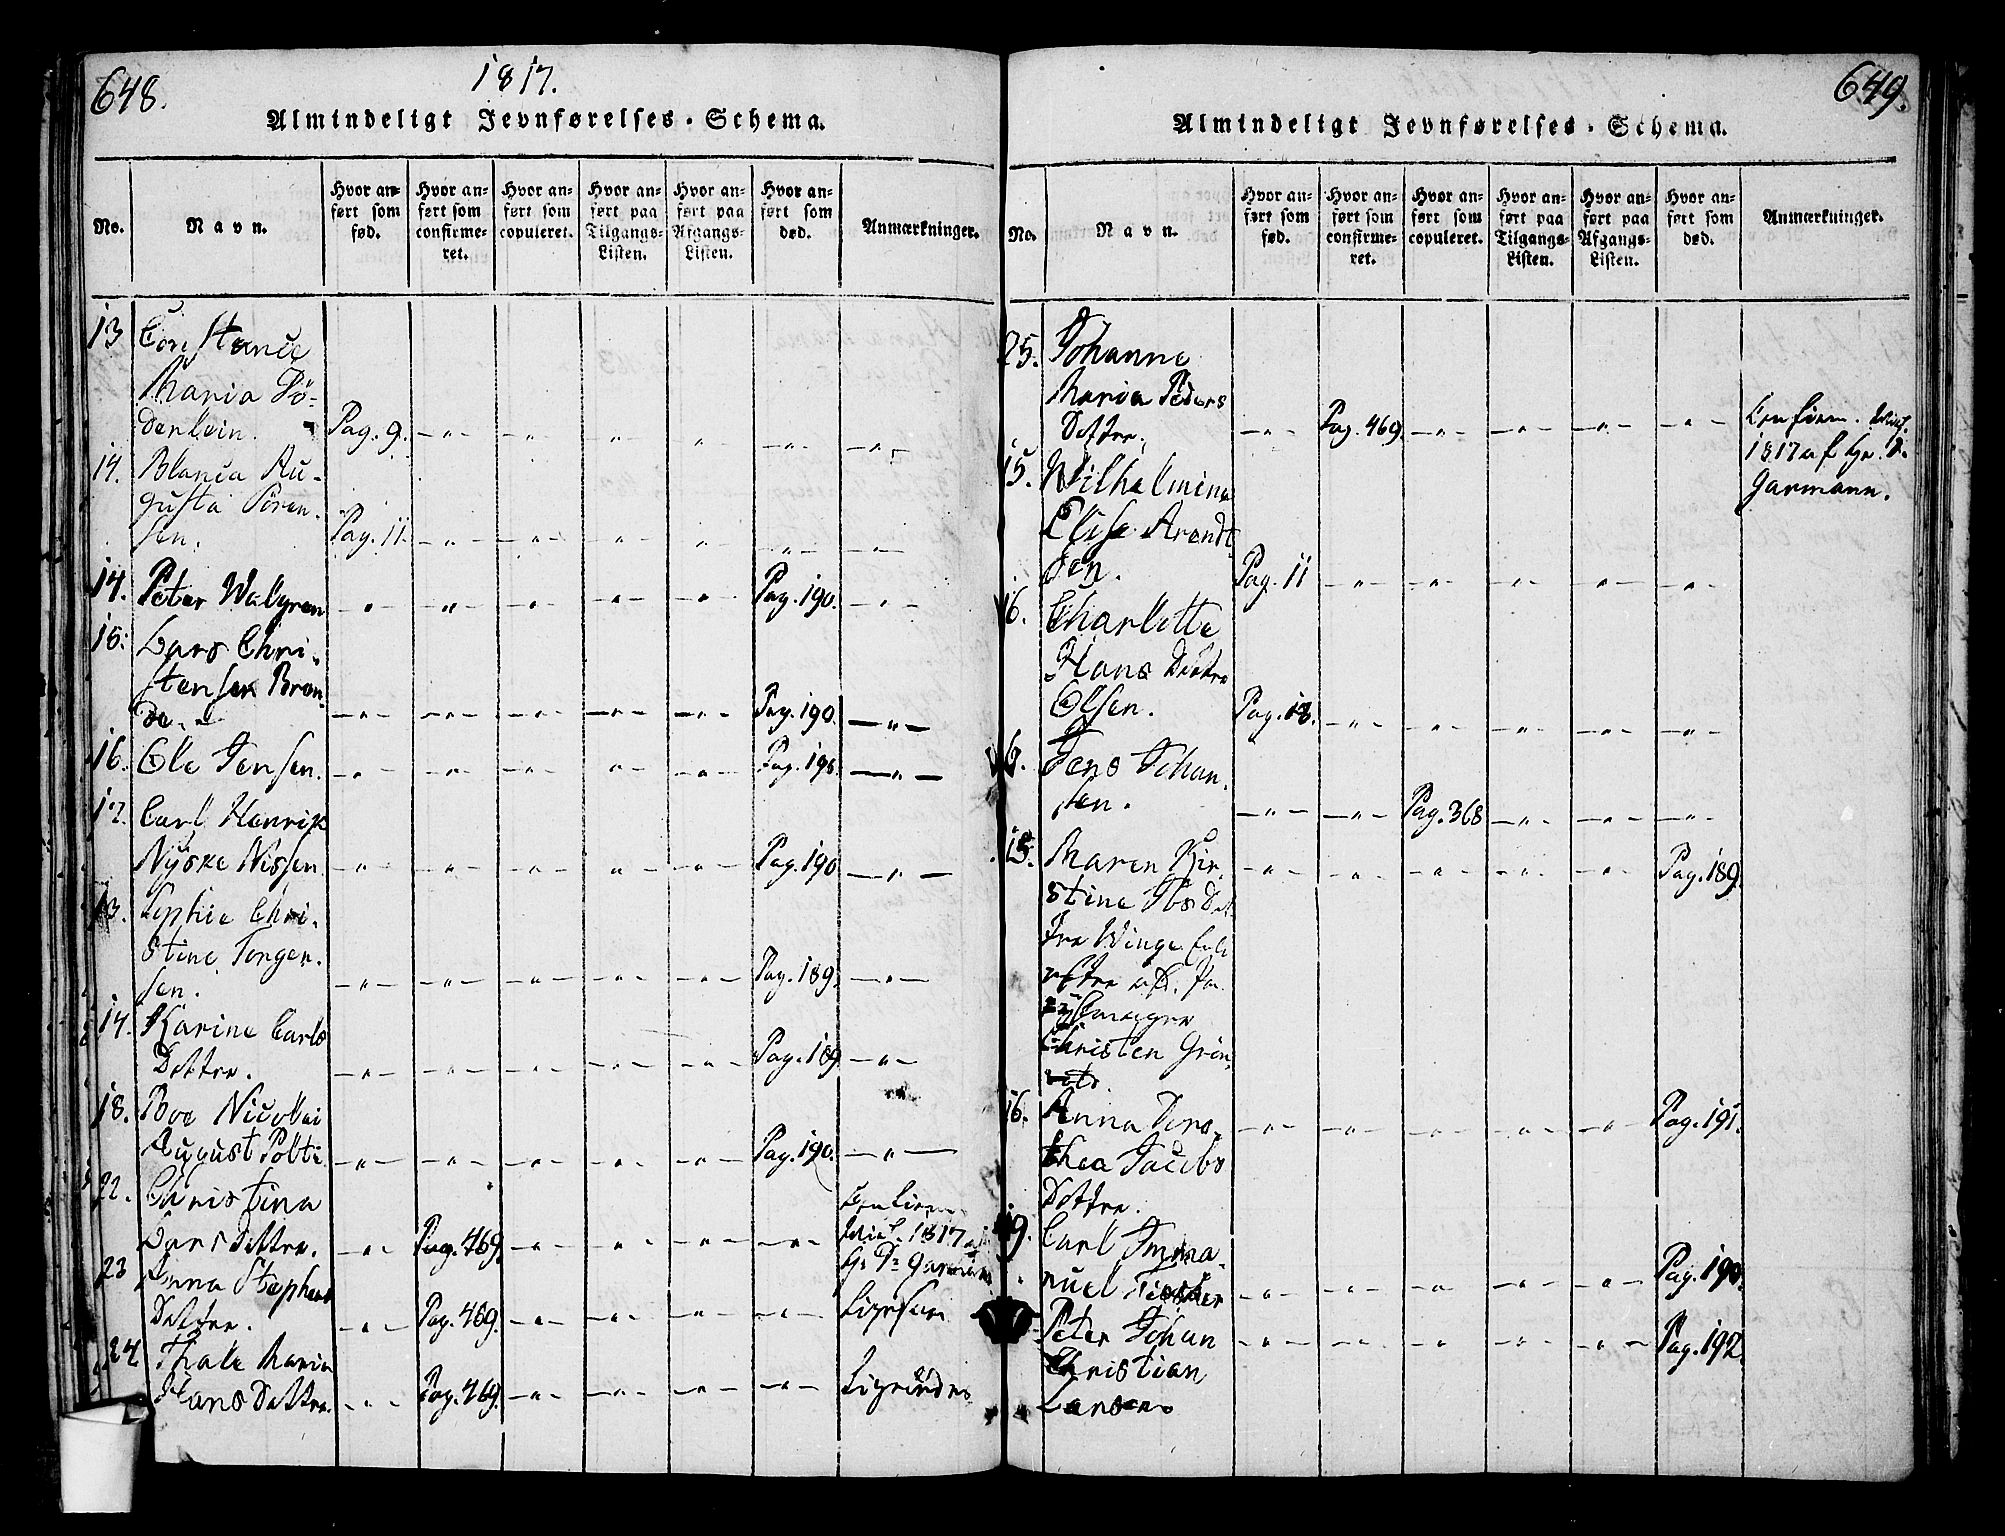 648.
1817.
Almindeligt Jevnførelses-Schema.
No.
Navn.
Hvor an-
ført som
fød.
Hvor an-
ført som
confirme-
ret.
Hvor an-
ført som
copuleret.
Hvor an-
ført paa
Tilgangs-
Listen.
Hvor an-
ført paa
Afgangs-
Listen.
Hvor an-
ført som
død.
Anmærkninger.
13 Constance
Maria Dö-
derlein. Pag. 9. -"- -"- -"- -"- -"- -"-
14. Blanca Au-
gusta Sören-
sen. Pag. 11. -"- -"- -"- -"- -"- -"-
14. Peter Walgren -"- -"- -"- -"- -"- Pag. 190. -"-
15. Lars Chri-
stensen Bran-
de. -"- -"- -"- -"- -"- Pag. 190. -"-
16. Ole Jensen. -"- -"- -"- -"- -"- Pag. 190. -"-
17. Carl Henrik
Nyske Nissen -"- -"- -"- -"- -"- Pag. 190 -"-
13. Sophie Chri-
stine Jörgen-
sen. -"- -"- -"- -"- -"- Pag. 189. -"-
14. Karine Carls
Dottre. -"- -"- -"- -"- -"- Pag. 189 -"-
18. Boe Nicolai
August Potti -"- -"- -"- -"- -"- Pag. 190. -"-
22. Christina
Lars Dottre. -"- Pag. 469. -"- -"- -"- -"- Confirm.
Mich. 1817 af
Hr. D. Garmann
23 Anna Stephens
Dottre. -"- Pag. 469. -"- -"- -"- -"- Ligesaa
24 Thale Maria
Hans Dottre. -"- Pag. 469. -"- -"- -"- -"-
649.
Almindeligt Jevnførelses-Schema.
No.
Navn.
Hvor an-
ført som
fød.
Hvor an-
ført som
confirme-
ret.
Hvor an-
ført som
copuleret.
Hvor an-
ført paa
Tilgangs-
Listen.
Hvor an-
ført paa
Afgangs-
Listen.
Hvor an-
ført som
død.
Anmærkninger.
25. Johanne
Maria Peders
Dottre. -"- Pag. 469. -"- -"- -"- -"- Confirm. Mich.
1817 af Hr. D.
Garmann.
15. Wilhelmine
Elise Arendt
sen. Pag. 11 -"- -"- -"- -"- -"-
16. Charlotte
Hans Dottre
Olsen. Pag. 18. -"- -"- -"- -"- -"-
6. Jens Johan-
sen. -"- -"- Pag. 368 -"- -"- -"-
15. Maren Kir- -"- -"- -"- -"- -"- Pag. 189.
stine Ibs Dat-
tre Winge
Christen Grön-
16. Anna Doro- -"- -"- -"- -"- -"- Pag. 191.
thea Jacobs
Dottre.
19. Carl Imma-
nuel Fischer -"- -"- -"- -"- -"- Pag. 190.
Peter Johan -"- -"- -"- -"- -"- Pag. 192.
Christian
Larsen